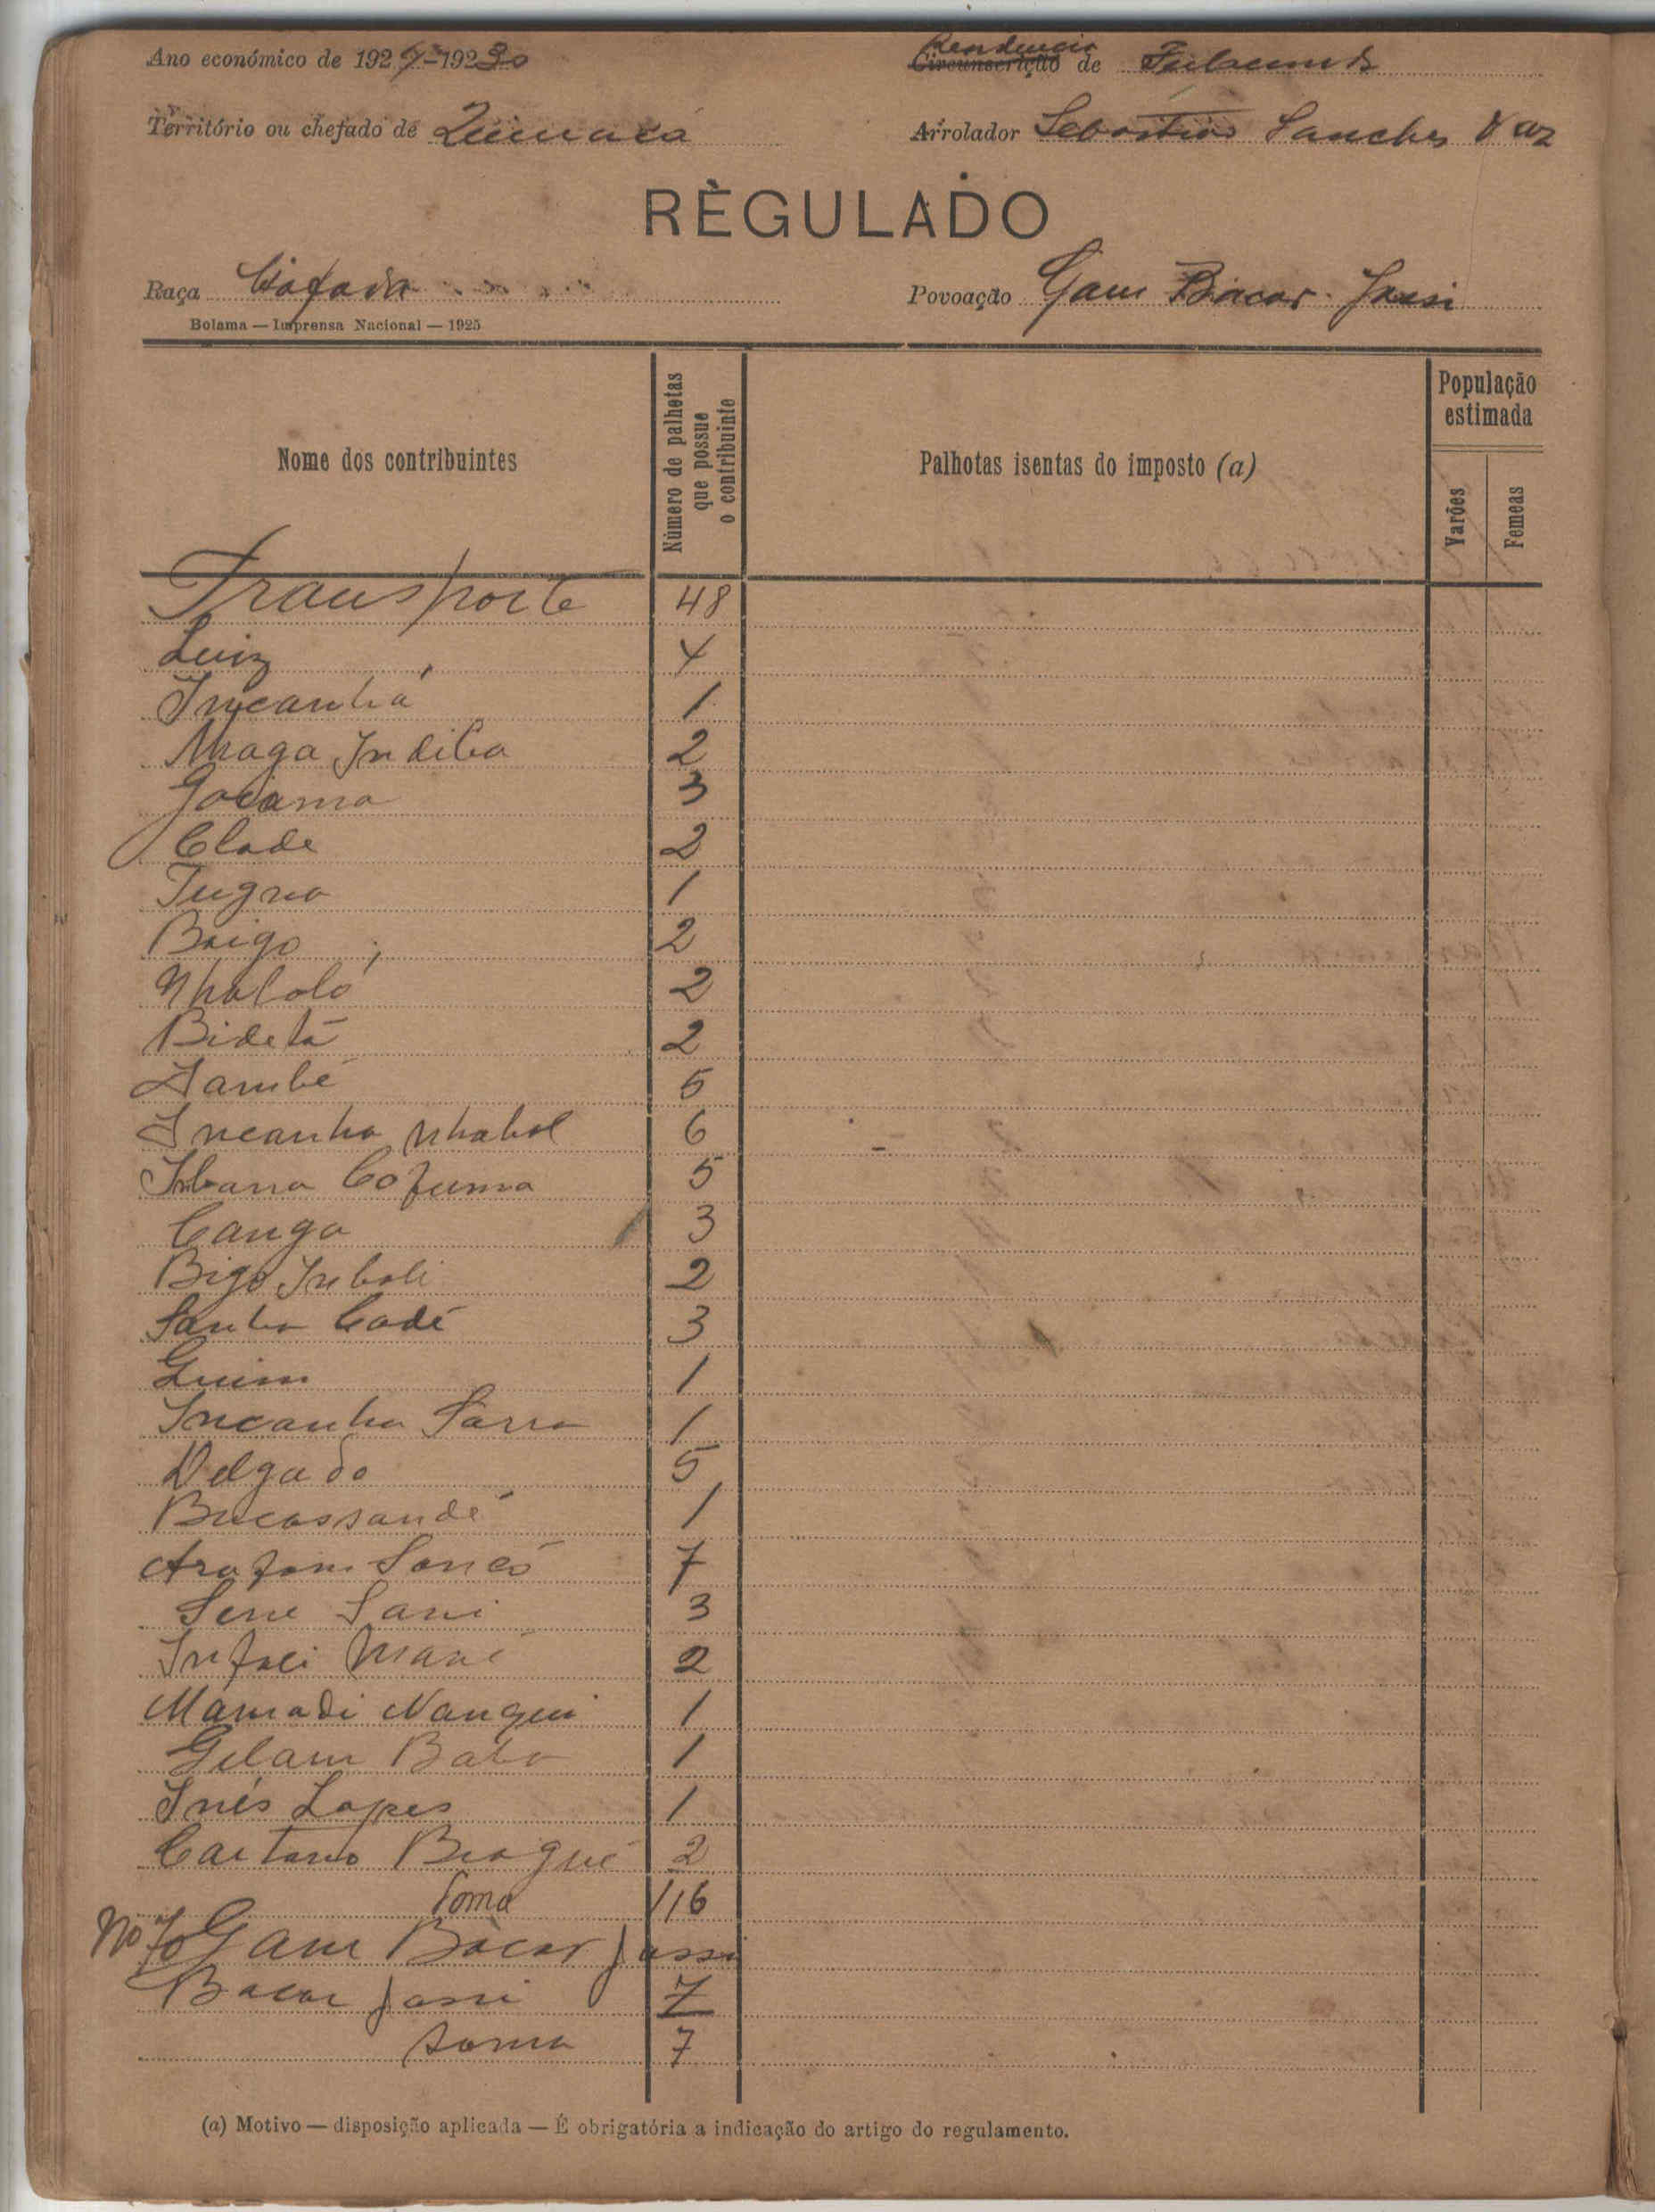 Ano económico de 1929-1930
Residencia
Circunscrição de Fulacunda
Território ou chefado de Quinara
Arrolador Sebastião Sanches Vaz
REGULADO
Raça Biafada
Povoação Gam Bacar Jassi
Bolama — Imprensa Nacional — 1925
Nome dos contribuintes
Número de palhotas que possue o contribuinte
Palhotas isentas do imposto (a)
População estimada
Varões
Femeas
Transporte 48
Luiz 4
Incanhá 1
Maga Indiba 2
3
Clode 2
Tugna 1
Boigo 2
Nhaloló 2
Bidetá 2
Jambé 5
Incanha Nhabol 6
5
Canga 3
Bigo Imboli 2
Sanha Cadé 3
1
Incanha Sarra 1
Delgado 5
Bucassandé 1
Arafam Soncó 7
Sene Sani 3
Infali Mané 2
Mamadi Nanqui 1
Gilam Babo 1
Inés Lopes 1
Caetano Biagué 2
Soma 116
Gam Bacar Jassi
Bacar Jassi 7
Soma 7
(a) Motivo — disposição aplicada — É obrigatória a indicação do artigo do regulamento.